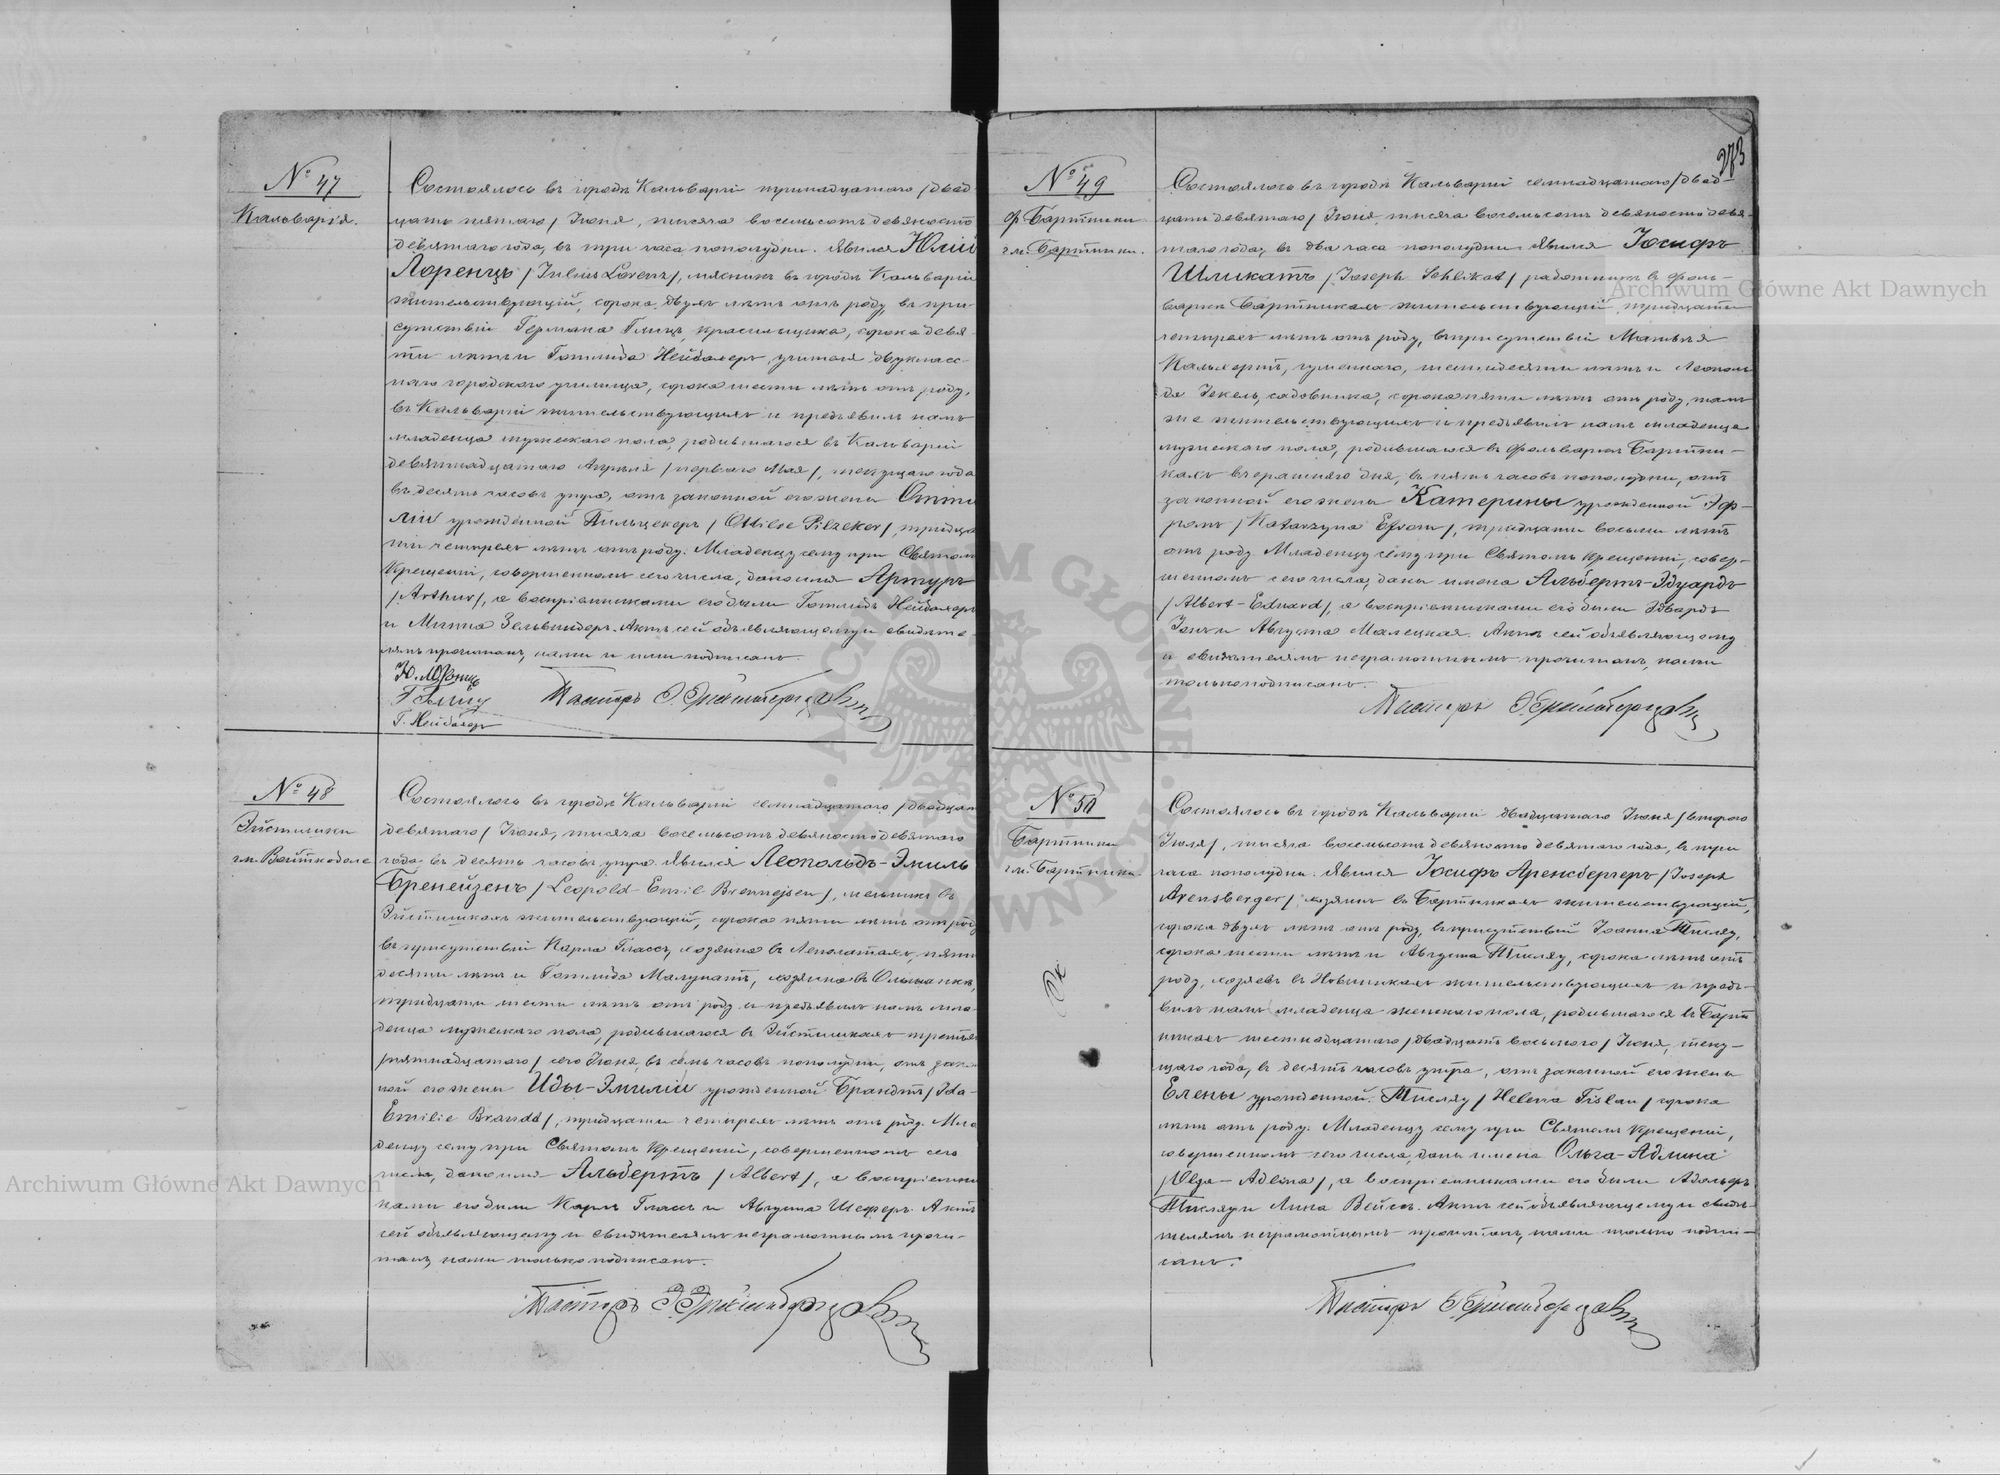 № 47
Кальварія.
Состоялось въ городѣ Кальваріи тринадцатаго /двад-
цать пятаго/ Іюня, тысяча восемьсотъ девяносто
девятаго года, въ три часа пополудни. Явился Юлій
Лоренцъ /Julius Lorenz/, мясникъ въ городѣ Кальваріи
жительствующій, сорока двухъ лѣтъ отъ роду, въ при-
сутствіи Германа Глицъ, красильщика, сорока девя-
ти лѣтъ и Готлиба Нейбахеръ, учителя двукласс-
наго городскаго училища, сорока шести лѣтъ отъ роду,
въ Кальваріи жительствующихъ и предъявилъ намъ
младенца мужескаго пола, родившагося въ Кальваріи
девятнадцатаго Апрѣля /перваго Мая/, текущаго года
въ десять часовъ утра, отъ законной его жены Отти-
ліи урожденной Пильцекеръ /Ottilie Pilzeker/, тридца-
ти четырехъ лѣтъ отъ роду. Младенцу сему при Святомъ
Крещеніи, совершенномъ сего числа, дано имя Артуръ
/Arthur/, а воспріемниками его были Готлибъ Нейбахеръ
и Минна Зельвиндеръ. Актъ сей объявляющему и свидѣте-
лямъ прочитанъ, нами и ими подписанъ.
Ю. Лоренцъ
Г. Глицъ
Г. Нейбахеръ
Пасторъ
№ 48
Эйстишки
гм. Войткобole
Состоялось въ городѣ Кальваріи семнадцатаго /двадцать
девятаго/ Іюня, тысяча восемьсотъ девяносто девятаго
года въ десять часовъ утра. Явился Леопольдъ-Эмиль
Бренейзенъ /Leopold-Emil Brennejsen/, мельникъ въ
Эйстишкахъ жительствующій, сорока пяти лѣтъ отъ роду
въ присутствіи Карла Глассъ, хозяина въ пяти-
десяти лѣтъ и Готлиба хозяина въ Ольшанкѣ,
тридцати шести лѣтъ отъ роду и предъявилъ намъ мла-
денца мужескаго пола, родившагося въ Эйстишкахъ третьяго
/пятнадцатаго/ сего Іюня, въ семь часовъ пополудни, отъ закон-
ной его жены Иды-Эмиліи урожденной Брандтъ /Ida-
Emilie Brandt/, тридцати четырехъ лѣтъ отъ роду. Мла-
денцу сему при Святомъ Крещеніи, совершенномъ сего
числа, дано имя Альбертъ /Albert/, а воспріемни-
ками его были Карлъ Глассъ и Августа Шеферъ. Актъ
сей объявляющему и свидѣтелямъ неграмотнымъ прочи-
танъ, нами только подписанъ.
Пасторъ
273
№ 49
ф. Бартники
гм. Бартники.
Состоялось въ городѣ Кальваріи семнадцатаго /двад-
цать девятаго/ Іюня, тысяча восемьсотъ девяносто девя-
таго года, въ два часа пополудни. Явился Іосифъ
Шликатъ /Joseph Schlikat/ работникъ въ фоль-
варкѣ Бартникахъ жительствующій тридцати
четырехъ лѣтъ отъ роду, въ присутствіи Матвѣя
шестидесяти лѣтъ и Леополь-
да Іекель, садовника, сорока пяти лѣтъ отъ роду, тамъ
же жительствующихъ и предъявилъ намъ младенца
мужескаго пола, родившагося въ фольваркѣ Бартни-
кахъ вчерашняго дня, въ пять часовъ пополудни, отъ
законной его жены Катерины урожденной Эф-
ромъ /Katarzyna Efrom/, тридцати восьми лѣтъ
отъ роду. Младенцу сему при Святомъ Крещеніи, совер-
шенномъ сего числа, даны имена Альбертъ-Эдуардъ
/Albert-Eduard/, а воспріемниками его были Эдвардъ
и Августа Малецкая. Актъ сей объявляющему
и свидѣтелямъ неграмотнымъ прочитанъ, нами
только подписанъ.
Пасторъ
№ 50
Бартники
гм. Бартники.
Состоялось въ городѣ Кальваріи двадцатаго Іюня /втораго
Іюля/, тысяча восемьсотъ девяносто девятаго года, въ три
часа пополудни. Явился Іосифъ Аренсбергеръ /Joseph
Arensberger/, хозяинъ въ Бартникахъ жительствующій,
сорока двухъ лѣтъ отъ роду, въ присутствіи Іоанна Тисляу,
сорока шести лѣтъ и Августа Тисляу, сорока лѣтъ отъ
роду, хозяевъ въ Новиникахъ жительствующихъ и предъ-
вилъ намъ младенца женскаго пола, родившагося въ Барт-
никахъ шестнадцатаго /двадцать восьмаго/ Іюня, теку-
щаго года, въ десять часовъ утра, отъ законной его жены
Елены урожденной Тисляу /Helena Tislau/ сорока
лѣтъ отъ роду. Младенцу сему при Святомъ Крещеніи,
совершенномъ сего числа, даны имена Ольга-Адлина
/Olga-Adlina/, а воспріемниками его были Адольфъ
Тисляу и Лина Вейсъ. Актъ сей объявляющему и свидѣ-
телямъ неграмотнымъ прочитанъ, нами только подпи-
санъ.
Пасторъ
Archiwum Główne Akt Dawnych
Archiwum Główne Akt Dawnych
ARCHIWUM GŁÓWNE AKT DAWNYCH